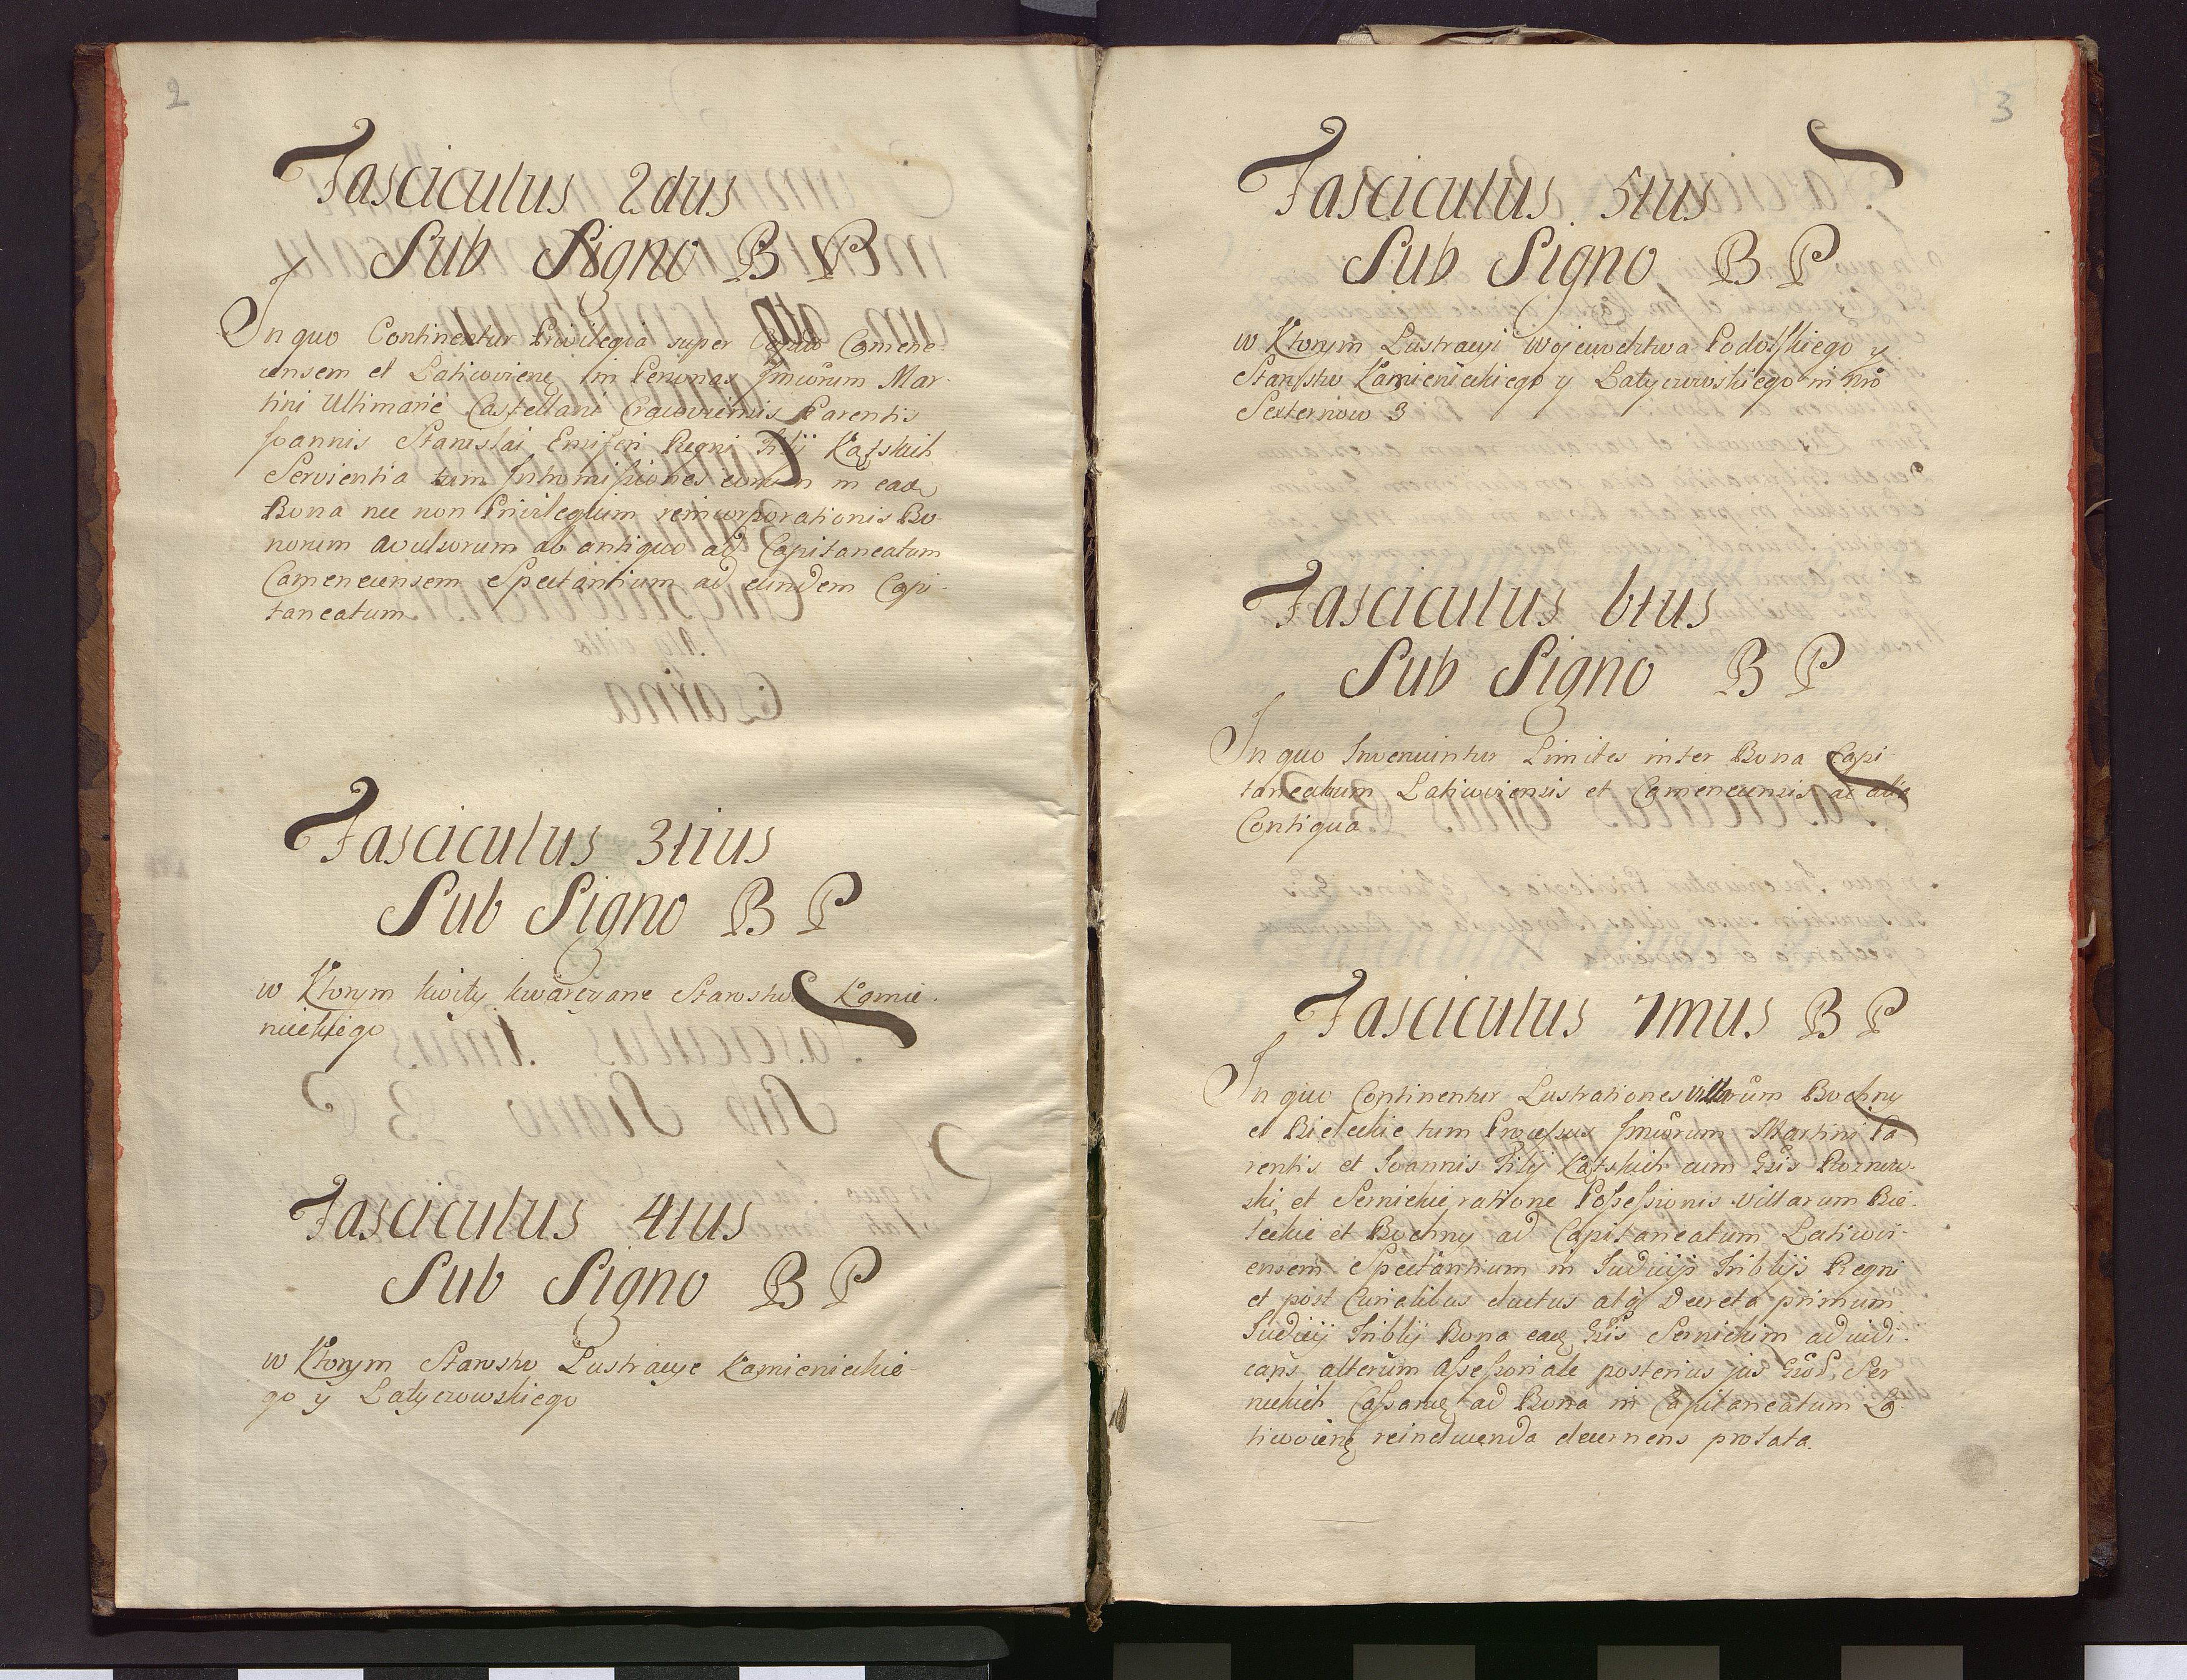 2
Fasciculus 2dus
Sub Signo B P
In quo Continentur Privilegia super Capttus Camene-
censem et Laticoviens in Personas Jmiorum Mar-
tini Ultimarie Castellani Cracoviensis Parentis
Joannis Stanislai Ensiferi Regni Filij Kątskich
Servientia tum Intromissiones eorum in eadem
Bona nec non Privilegium reincorporationis Bo-
norum avulsorum ab antiquo ad Capitaneatum
Camenecensem Spectantium ad eundem Capi-
taneatum
Fasciculus 3tius
Sub Signo B P
w Ktorym kwity kwarcyane Starostwa Kamie-
nieckiego
Fasciculus 4tus
Sub Signo B P
w Ktorym Starostw Lustracye Kamienieckie-
go y Latyczowskiego
3
Fasciculus 5tus
Sub Signo B P
w Ktorym Lustracyi Wojewodztwa Podolskiego y
Starostw Kamienieckiego y Latyczowskiego in nro
Sexternow 3
Fasciculus 6tus
Sub Signo B P
In quo Inveniuntur Limites inter Bona Capi-
taneatuum Laticoviensis et Camenecensis ac alia
Contigua
Fasciculus 7mus B P
In quo Continentur Lustrationes villarum Bochny
et Bieleckie tum Processus Jmiorum Martini Pa-
rentis et Joannis Filij Kątskich cum Gsis
ski, et Sernickie ratione Possessionis villarum Bie-
leckie et Bochny ad Capitaneatum Laticovi-
ensem Spectantium in Judicijs Triblijs Regni
et post Curialibus ductus atq Decreta primum
Judicij Triblij Bona eadem Gsis Sernickim adjudi-
cans alterum Assessoriale posterius jus Ser-
nickich Cassans ad Bona in Capitaneatum La-
ticoviens reinducenda decernens prolata.